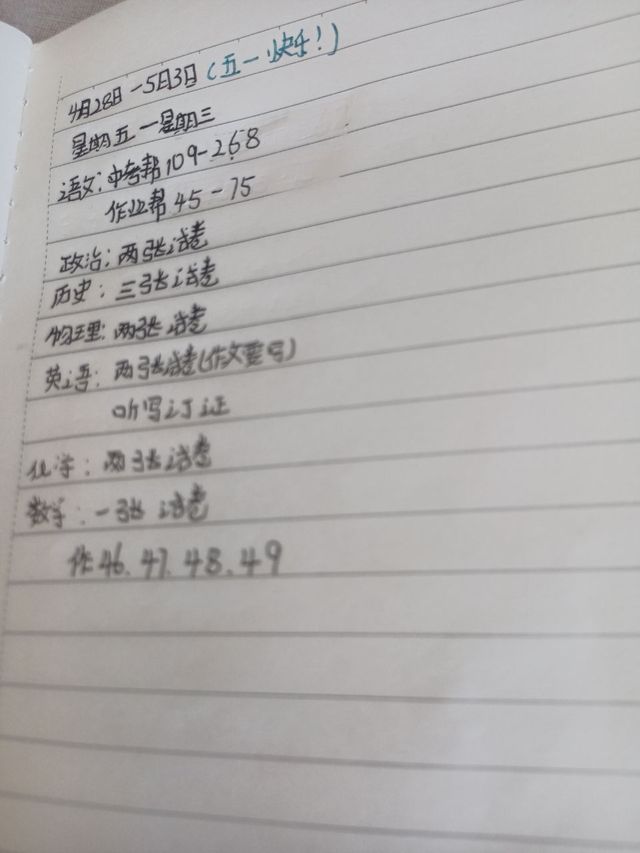 4月28日-5月3日(五一快乐!)
星期五-星期三
语文:中考帮109-268
作业帮45-75
政治:两张试卷
历史:三张试卷
物理:两张试卷
英语:两张试卷(作文要写)
听写订正
化学:两张试卷
数学:一张试卷
作46.47.48.49